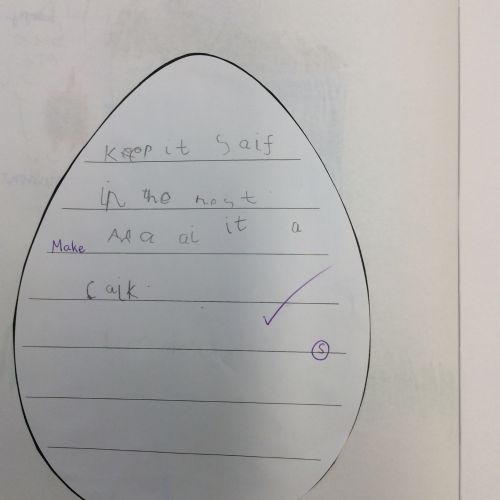 Keep it Saif
in the nest
Make it a
caik.
S